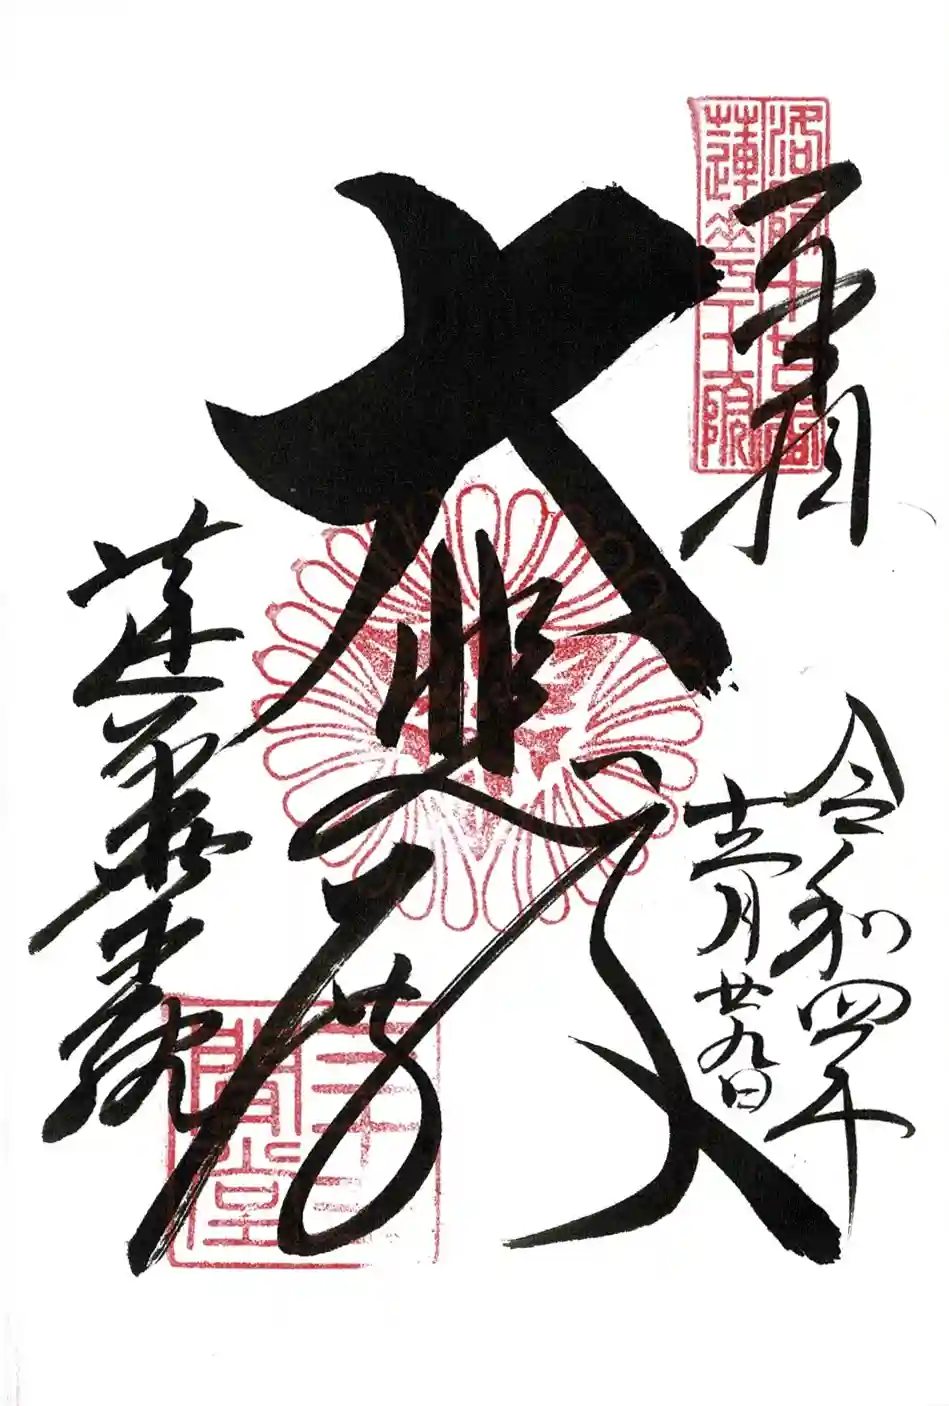 奉拝
洛陽十七番
蓮華王院
令和四年
十二月廿九日
大悲殿
蓮華王院
三十三
間堂